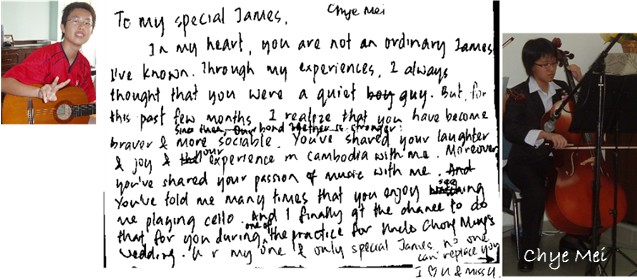 To my special James,
Chye Mei
In my heart, you are not an ordinary James
I've known. Through my experiences, I always
thought that you were a quiet boy guy. But, for
this past few months, I realize that you have become
since then, our bond together is stronger.
braver & more sociable. You've shared your laughter
& joy & your experience in Cambodia with me. Moreover
you've shared your passion of music with me. And
You've told me many times that you enjoy seeing
me playing cello. And I finally gt the chance to do
that for you during one of the practice for Uncle Chong Ming's
wedding. U r my one & only special James. no one
can replace you
I ♡ U & miss U.
Chye Mei